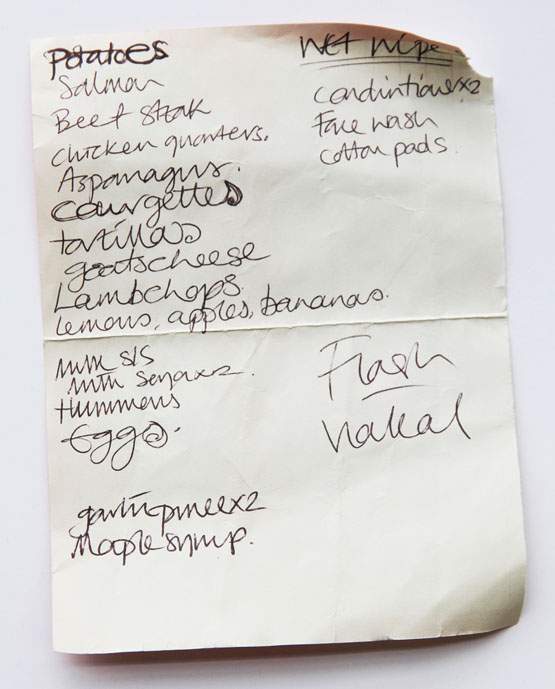 Potatoes
Salmon
Beef steak
chicken quarters.
Asparagus.
courgettes
tortillas
goatscheese
Lambchops.
lemons, apples, bananas.
milk s/s
milk
Hummens
Eggs.
garlic puree x2
Maple syrup.
WET WIPE.
condintioner x2
Face wash
cotton pads.
Flash